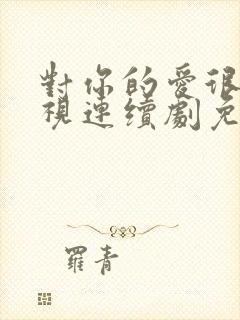 對你的愛很
視連續劇免
羅青